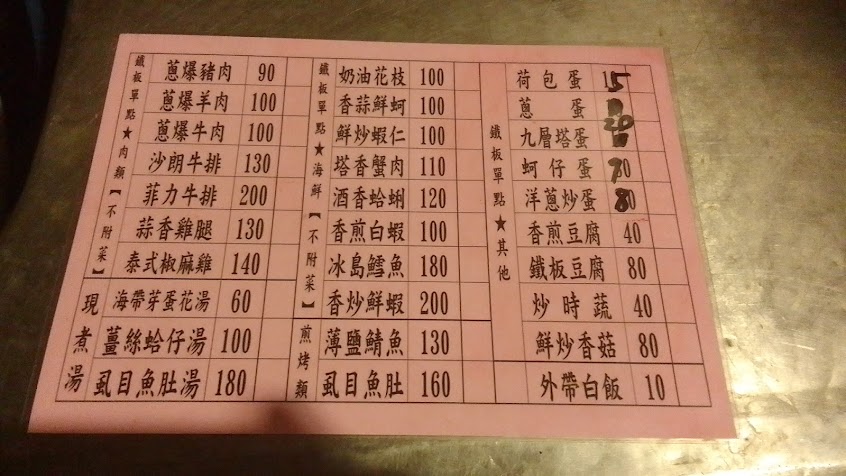 鐵板單點★肉類【不附菜】
蔥爆豬肉 90
蔥爆羊肉 100
蔥爆牛肉 100
沙朗牛排 130
菲力牛排 200
蒜香雞腿 130
泰式椒麻雞 140
現煮湯
海帶芽蛋花湯 60
薑絲蛤仔湯 100
虱目魚肚湯 180
鐵板單點★海鮮【不附菜】
奶油花枝 100
香蒜鮮蚵 100
鮮炒蝦仁 100
塔香蟹肉 110
酒香蛤蜊 120
香煎白蝦 100
冰島鱈魚 180
香炒鮮蝦 200
煎烤類
薄鹽鯖魚 130
虱目魚肚 160
鐵板單點★其他
荷包蛋 15
蔥蛋
九層塔蛋
蚵仔蛋 70
洋蔥炒蛋 80
香煎豆腐 40
鐵板豆腐 80
炒時蔬 40
鮮炒香菇 80
外帶白飯 10